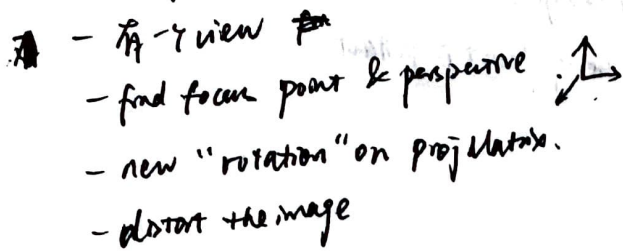 - 有一个 view
- find focus point & perspective
- new "rotation" on proj Matrix.
- distort the image